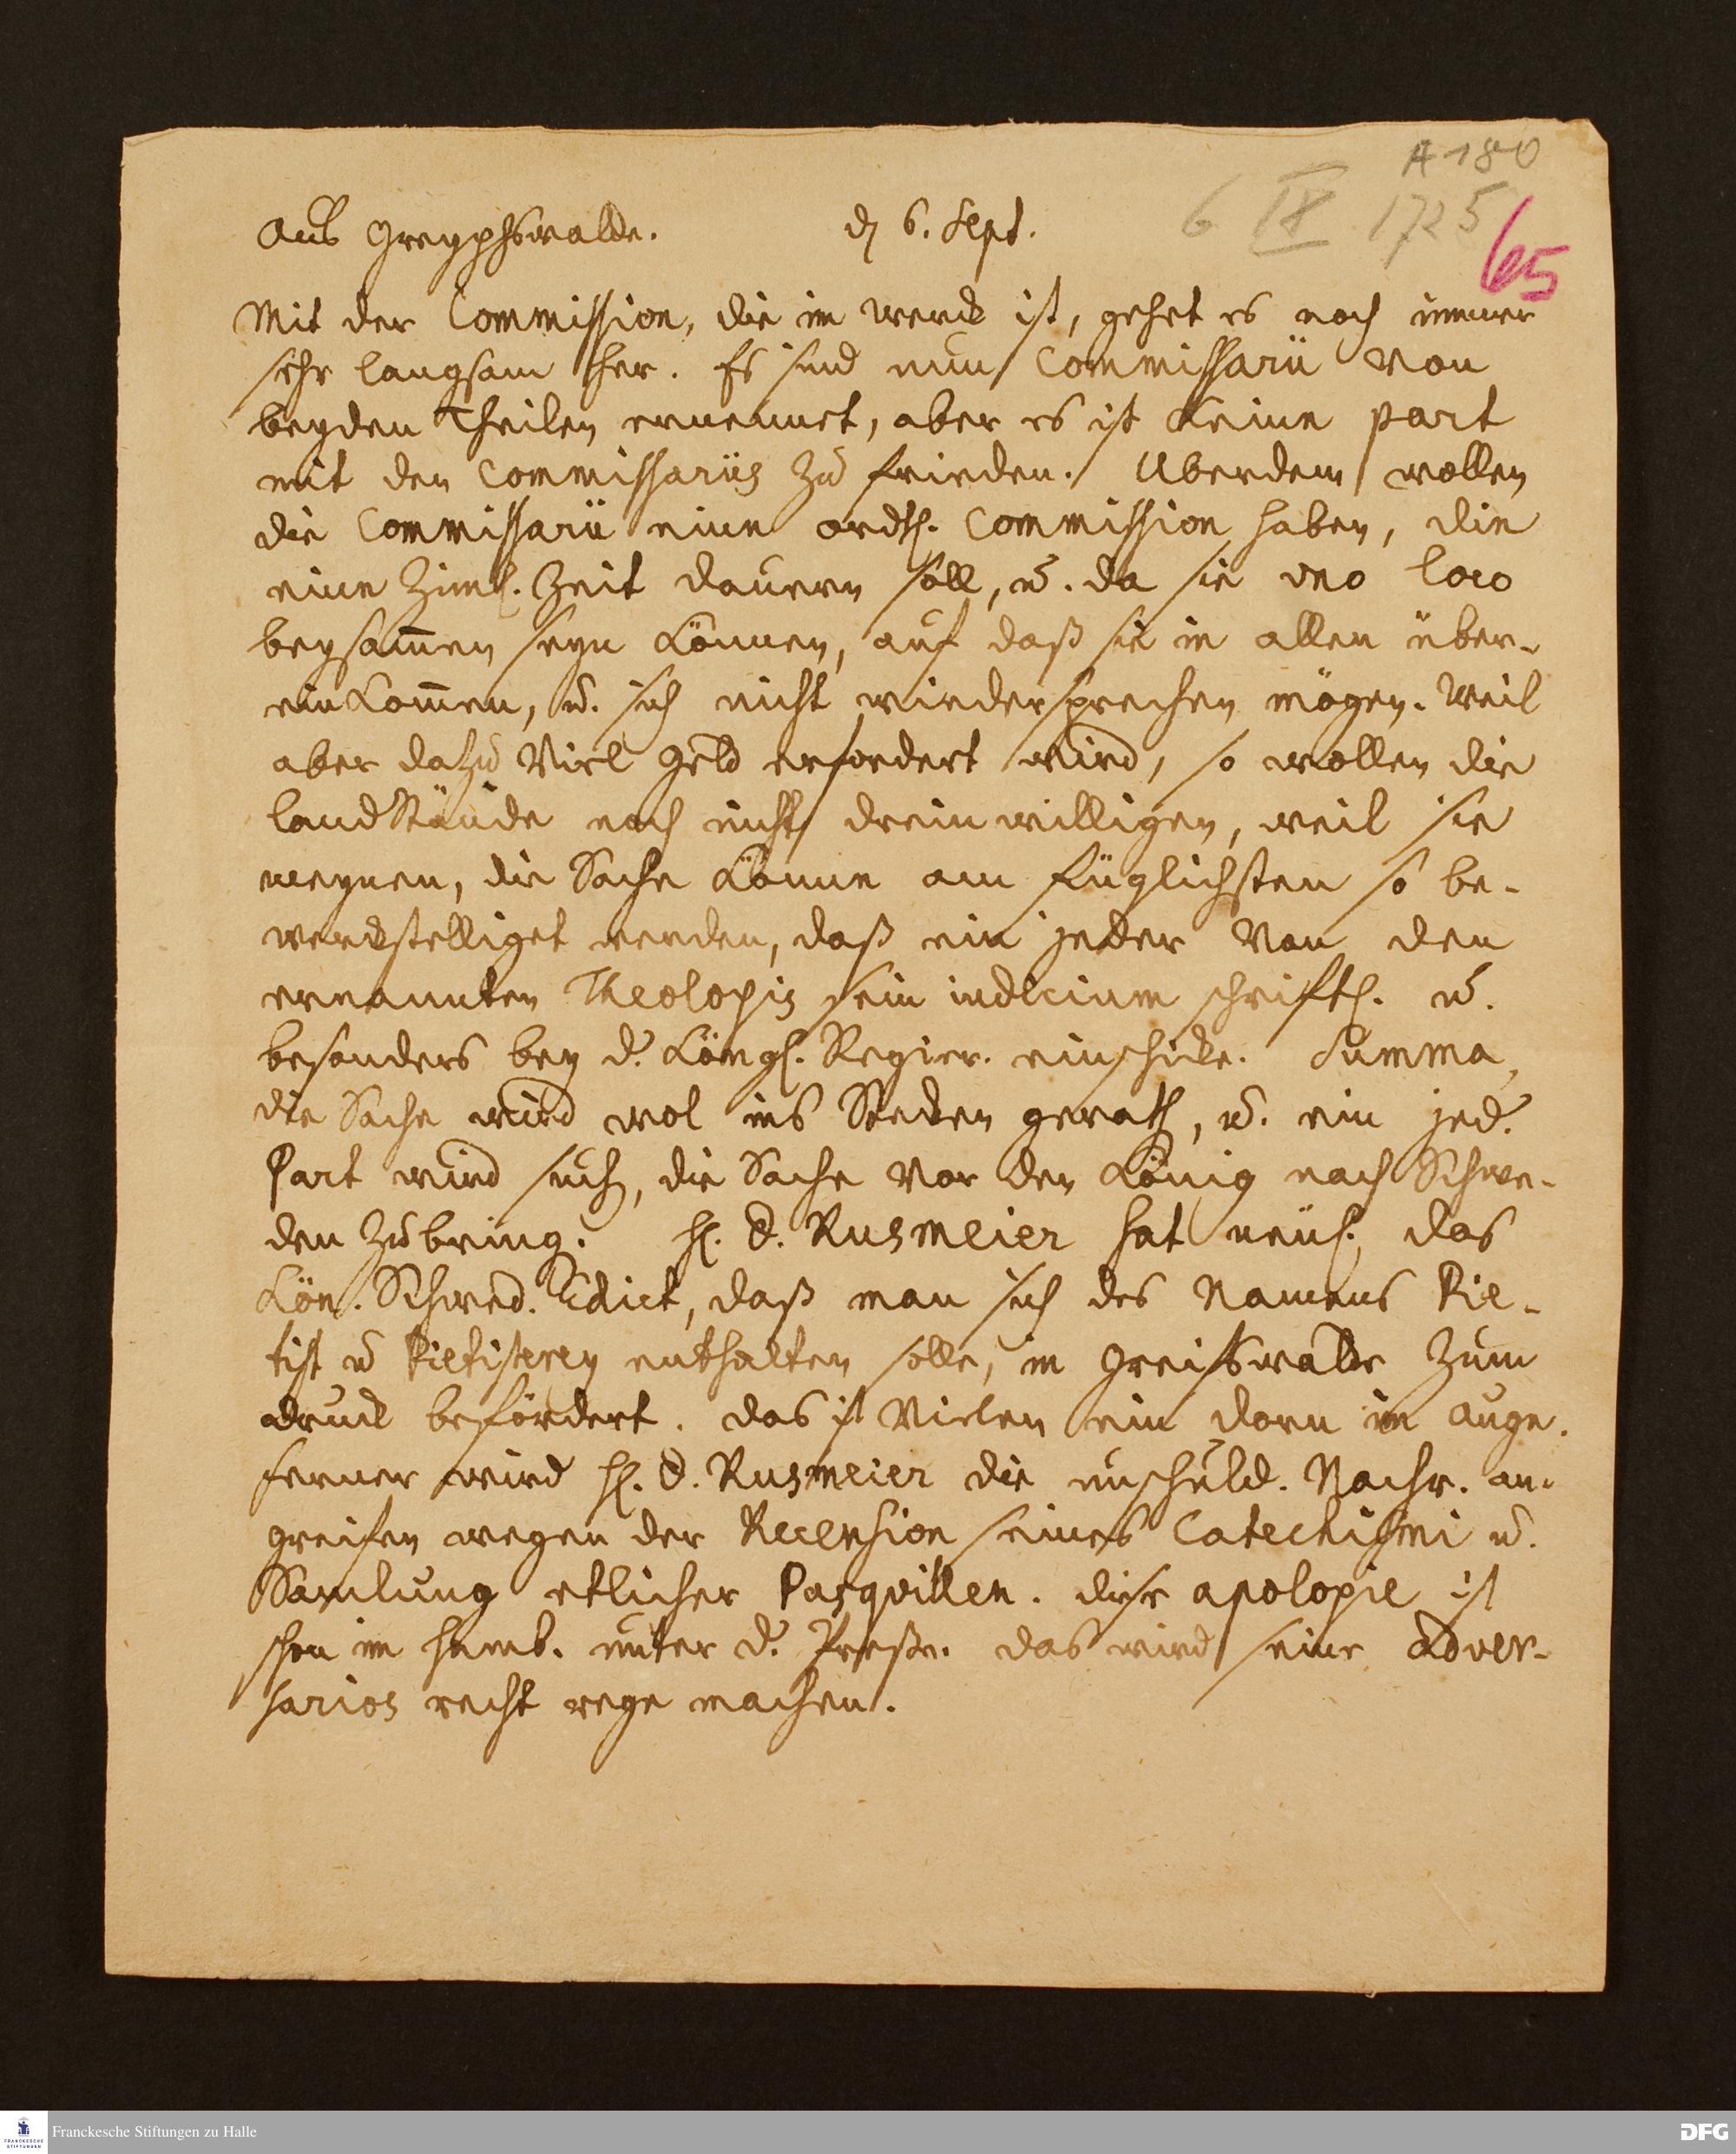 A 180
6 IX 1725
65
Aus Greyphswalde. d 6. Sept.
Mit der Commission, die im werck ist, gehet es noch immer
sehr langsam her. Es sind nun Commissarii von
beyden Theilen ernennet, aber es ist keine part
mit den Commissariis zu frieden. Uberdem wollen
die Commissarii eine ordtl. Commission haben, die
eine Ziml. Zeit dauern soll, u. da sie uno loco
beysam̅en seyn können, auf daß sie in allen über-
einkom̅en, u. sich nicht wiedersprechen mögen. Weil
aber dazu Viel Geld erfordert wird, so wollen die
landStände noch nicht drein willigen, weil sie
meynen, die Sache könne am füglichsten so be-
werckstelliget werden, daß ein jeder Von den
ernannten Theologis sein iudicium schriftl. u.
besonders bey d. Köngl. Regier. einschicke. Summa,
die Sache wird wol ins Stecken gerath, u. ein jed.
Part wird such, die Sache Vor den König nach Schwe-
den Zu bring. H. D. Rusmeier hat neul. das
Kön. Schwed. Edict, daß man sich des Namens Pie-
tist u Pietisterey enthalten solle, in Greifswalde Zum
druck befördert. das ist Vielen ein dorn im auge.
ferner wird H. D. Rusmeier die unschuld. Nachr. an-
greifen wegen der Recension seines Catechismi u.
Samlung etlicher Pasquillen. diese apologie ist
schon in Hamb. unter d. Presse. das wird seine Adver-
sarios recht rege machen.
FRANCKESCHE
STIFTUNGEN
Franckesche Stiftungen zu Halle
DFG